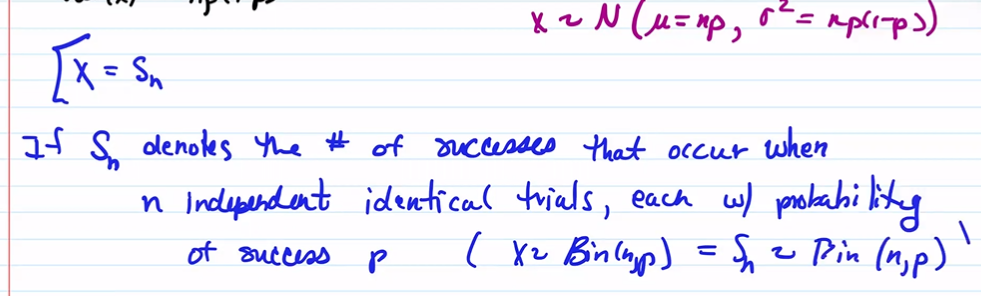 X ~ N (μ = np, σ² = np(1-p))
[X = Sₙ
If Sₙ denotes the # of successes that occur when
n independent identical trials, each w/ probability
of success p ( X ~ Bin(n,p) = Sₙ ~ Bin (n,p)